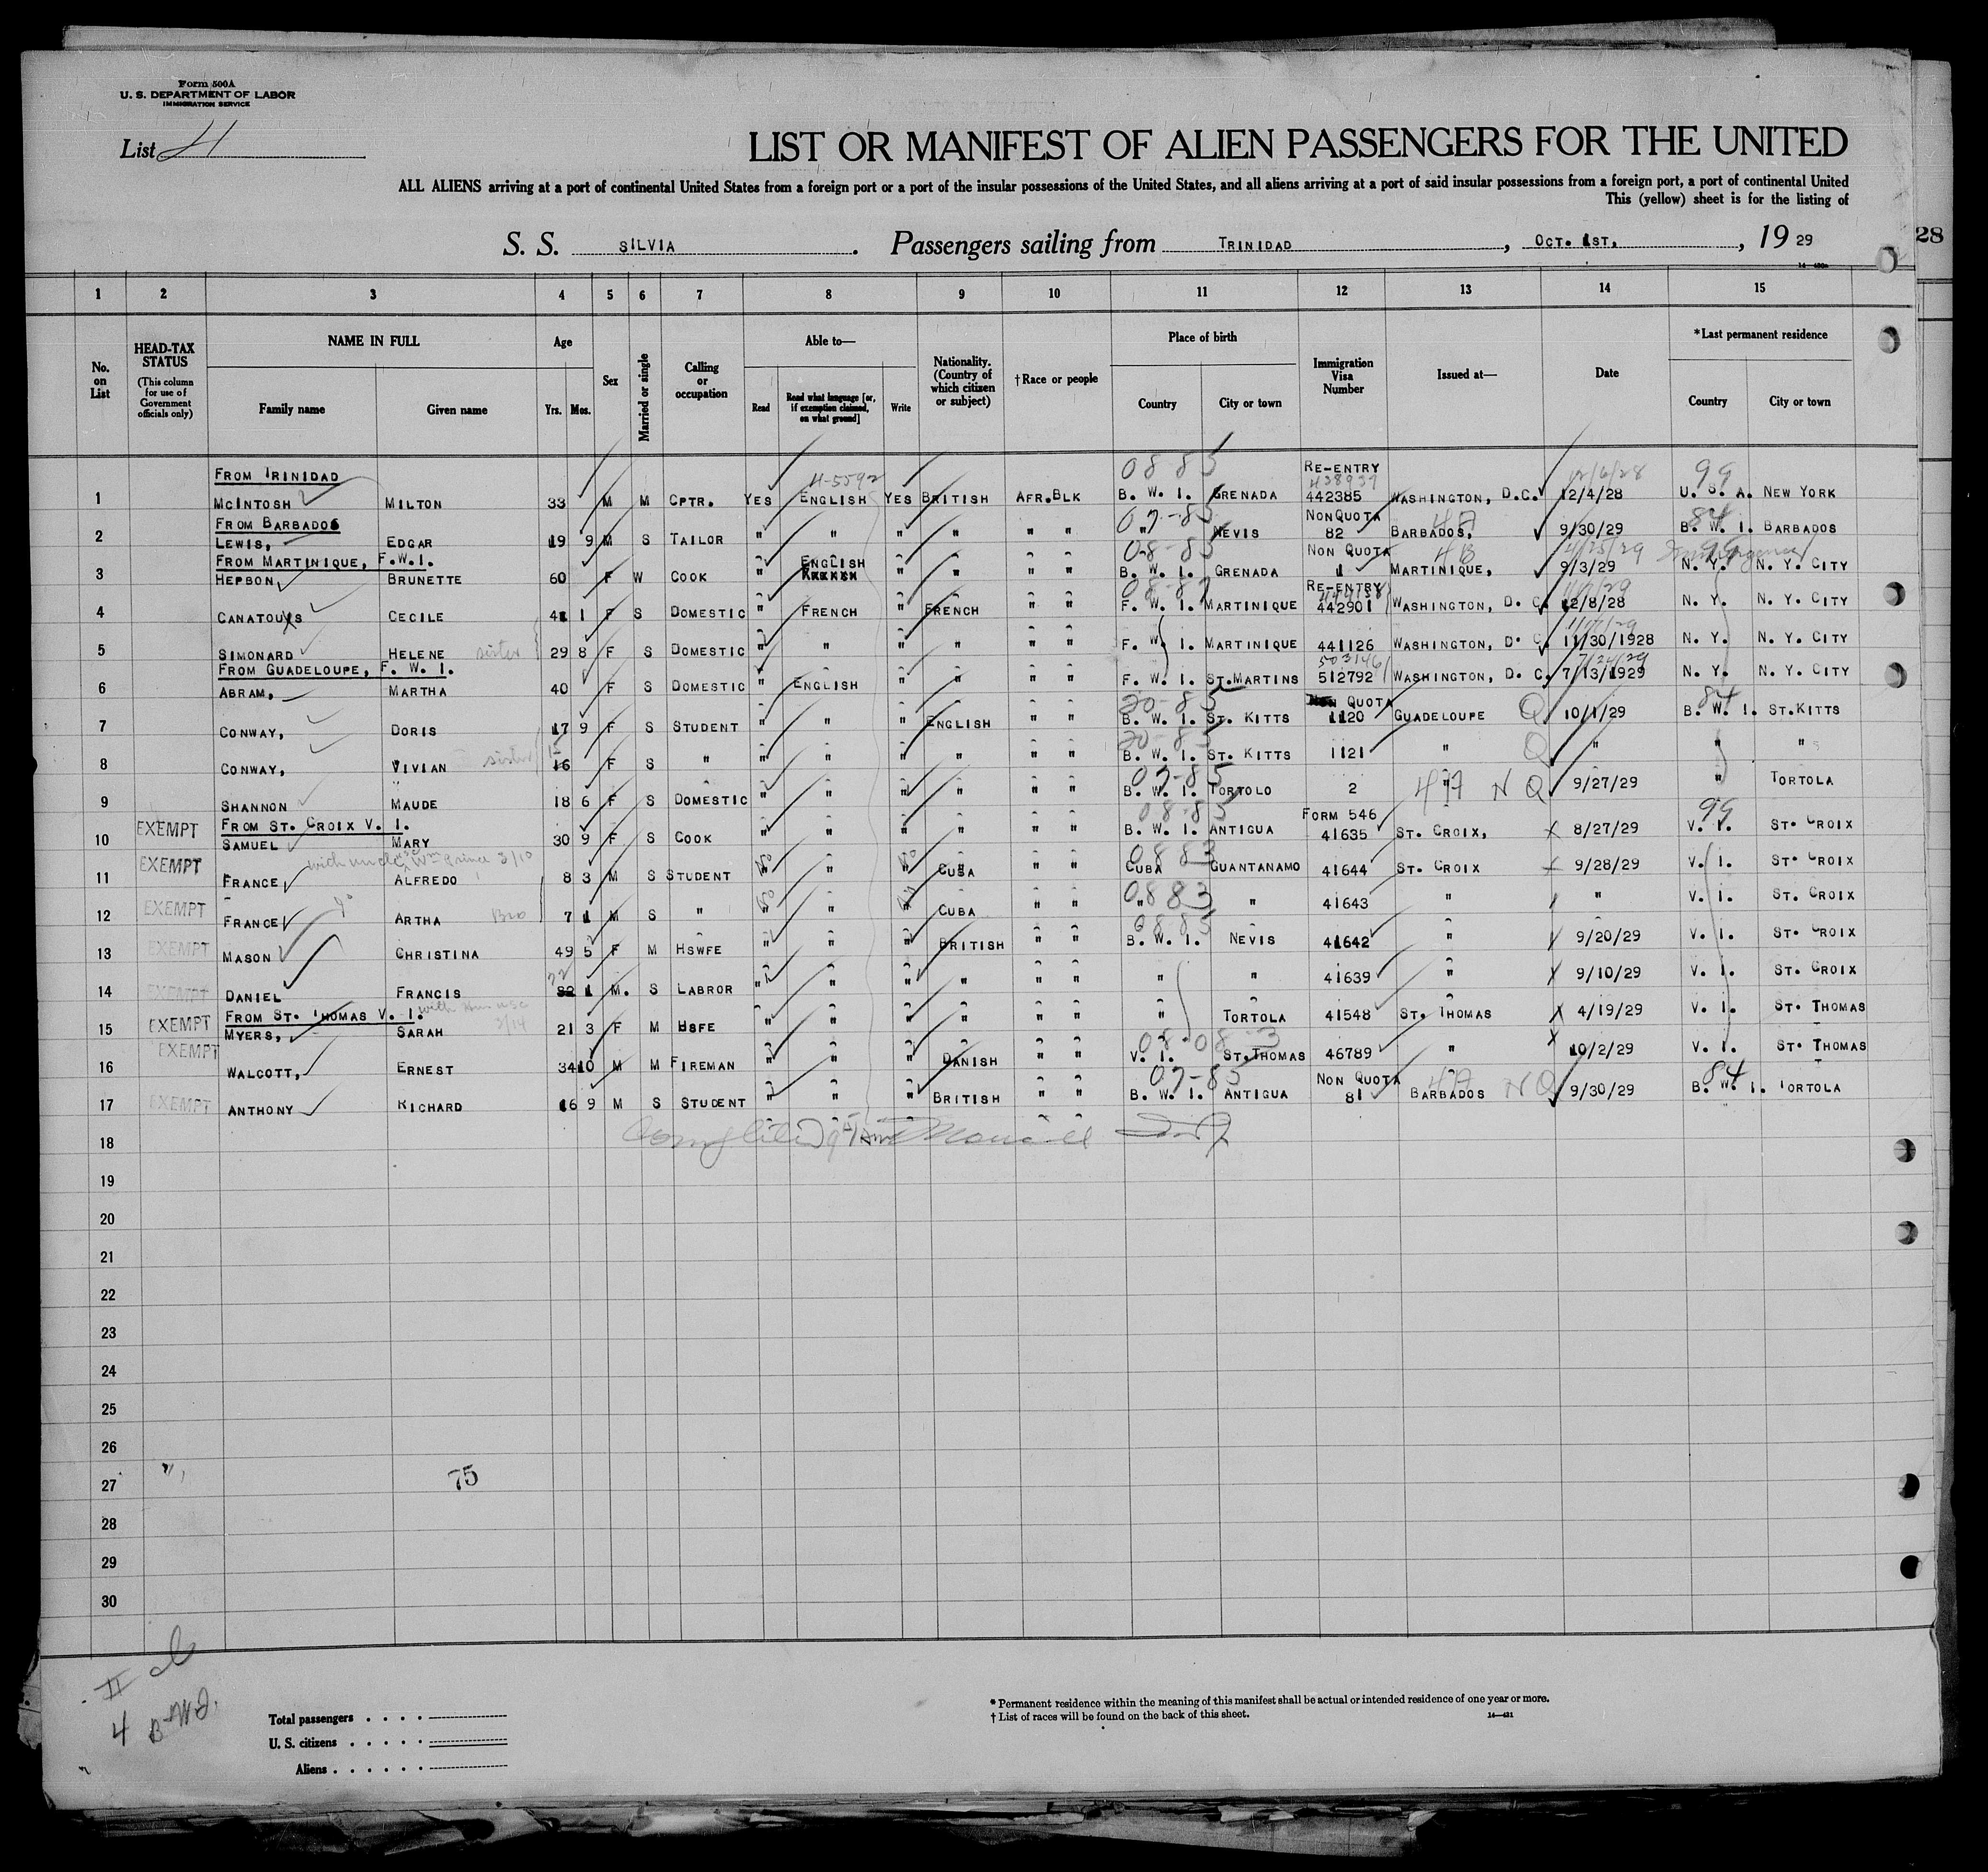 Form 500A
U. S. DEPARTMENT OF LABOR
IMMIGRATION SERVICE
List 4
LIST OR MANIFEST OF ALIEN PASSENGERS FOR THE UNITED
ALL ALIENS arriving at a port of continental United States from a foreign port or a port of the insular possessions of the United States, and all aliens arriving at a port of said insular possessions from a foreign port, a port of continental United
This (yellow) sheet is for the listing of
S. S. SILVIA. Passengers sailing from TRINIDAD, OCT. 1ST., 19 29
28
1 2 3 4 5 6 7 8 9 10 11 12 13 14 15
No. on List
HEAD-TAX STATUS (This column for use of Government officials only)
NAME IN FULL
Family name Given name
Age Yrs. Mos.
Sex
Married or single
Calling or occupation
Able to—
Read Read what language [or, if exemption claimed, on what ground] Write
Nationality. (Country of which citizen or subject)
†Race or people
Place of birth
Country City or town
Immigration Visa Number
Issued at—
Date
*Last permanent residence
Country City or town
FROM TRINIDAD 4-5592 0885 RE-ENTRY 438939 12/6/28 99
1 MCINTOSH MILTON 33 M M CPTR. YES ENGLISH YES BRITISH AFR.BLK B. W. I. GRENADA 442385 WASHINGTON, D.C. 12/4/28 U. S. A. NEW YORK
FROM BARBADOS 07-85 NONQUOTA 4A 84
2 LEWIS, EDGAR 19 9 M S TAILOR " " " " " " " NEVIS 82 BARBADOS, 9/30/29 B. W. I. BARBADOS
FROM MARTINIQUE, F.W.I. ENGLISH 08-85 NON QUOTA 4B 4/25/29 99
3 HEPBON BRUNETTE 60 F W COOK " " " " " B. W. I. GRENADA 1 MARTINIQUE, 9/3/29 N. Y. N. Y. CITY
RE-ENTRY
4 CANATOUS CECILE 41 1 F S DOMESTIC " FRENCH " FRENCH " " F. W. I. MARTINIQUE 442901 WASHINGTON, D. C. 12/8/28 N. Y. N. Y. CITY
5 SIMONARD HELENE sister 29 8 F S DOMESTIC " " " " " " F. W. I. MARTINIQUE 441126 WASHINGTON, D. C. 11/30/1928 N. Y. N. Y. CITY
FROM GUADELOUPE, F. W. I. 503146 7/24/29
6 ABRAM, MARTHA 40 F S DOMESTIC " ENGLISH " " " " F. W. I. ST.MARTINS 512792 WASHINGTON, D. C. 7/13/1929 N. Y. N. Y. CITY
20-85 QUOTA 84
7 CONWAY, DORIS 17 9 F S STUDENT " " " ENGLISH " " B. W. I. ST. KITTS 1120 GUADELOUPE Q 10/1/29 B. W. I. ST.KITTS
20-85
8 CONWAY, VIVIAN sister 16 F S " " " " " " " B. W. I. ST. KITTS 1121 " Q " " "
07-85
9 SHANNON MAUDE 18 6 F S DOMESTIC " " " " " " B. W. I. TORTOLO 2 " 4A N Q 9/27/29 " TORTOLA
FROM ST. CROIX V. I. 08-85 FORM 546 99
10 EXEMPT SAMUEL MARY 30 9 F S COOK " " " " " " B. W. I. ANTIGUA 41635 ST. CROIX, 8/27/29 V. I. ST. CROIX
with uncle Wm Prince 0883
11 EXEMPT FRANCE ALFREDO 8 3 M S STUDENT no " no CUBA " " CUBA GUANTANAMO 41644 ST. CROIX 9/28/29 V. I. ST. CROIX
0883
12 EXEMPT FRANCE ARTHA Bro 7 1 M S " " " " CUBA " " " " 41643 " " V. I. ST. CROIX
0885
13 EXEMPT MASON CHRISTINA 49 5 F M HSWFE " " " BRITISH " " B. W. I. NEVIS 41642 " 9/20/29 V. I. ST. CROIX
14 EXEMPT DANIEL FRANCIS 22 1 M. S LABROR " " " " " " " " 41639 " 9/10/29 V. I. ST. CROIX
FROM ST. THOMAS V. I.
15 EXEMPT MYERS, SARAH 21 3 F M HSFE " " " " " " " TORTOLA 41548 ST. THOMAS 4/19/29 V. I. ST. THOMAS
16 EXEMPT WALCOTT, ERNEST 34 10 M M FIREMAN " " " DANISH " " V. I. ST.THOMAS 46789 " 10/2/29 V. I. ST. THOMAS
07-85 NON QUOTA 4A N Q 84
17 EXEMPT ANTHONY RICHARD 16 9 M S STUDENT " " " BRITISH " " B. W. I. ANTIGUA 81 BARBADOS 9/30/29 B. W. I. TORTOLA
18
19
20
21
22
23
24
25
26
27 75
28
29
30
II
4 B.W.I.
Total passengers
U. S. citizens
Aliens
* Permanent residence within the meaning of this manifest shall be actual or intended residence of one year or more.
† List of races will be found on the back of this sheet.